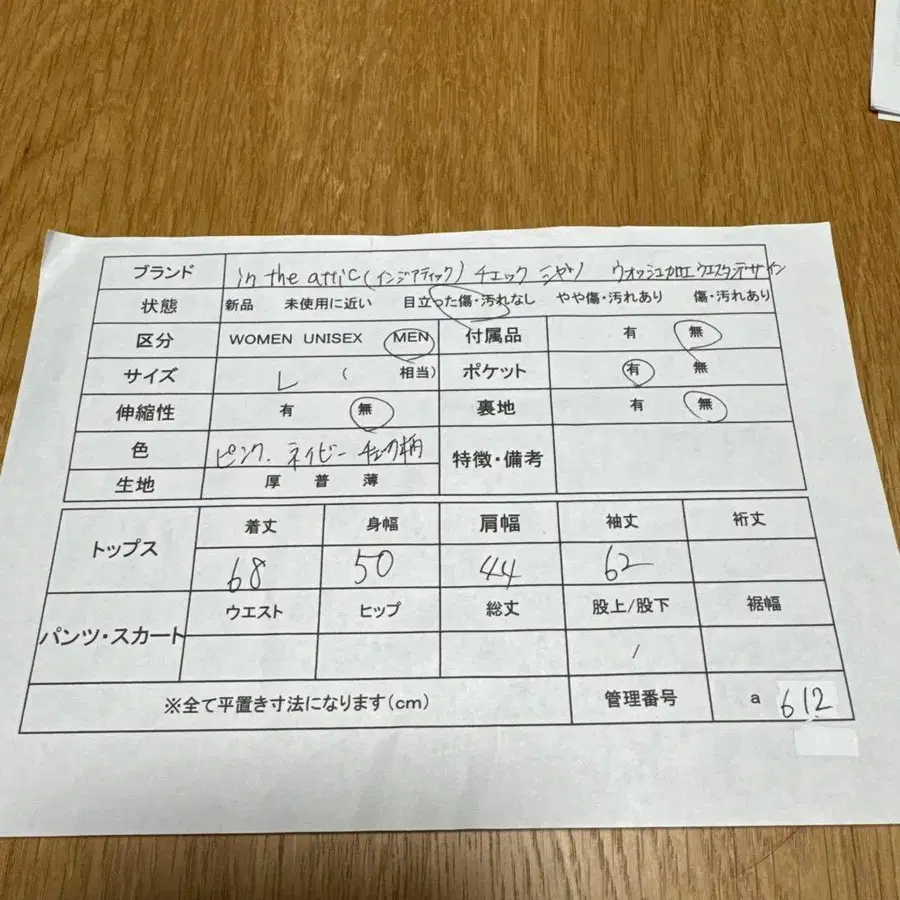 ブランド in the attic(インジアティック) チェック シャツ ウォッシュ加工 ウエスタンデザイン
状態 新品 未使用に近い 目立った傷・汚れなし やや傷・汚れあり 傷・汚れあり
区分 WOMEN UNISEX MEN 付属品 有 無
サイズ L ( 相当) ポケット 有 無
伸縮性 有 無 裏地 有 無
色 ピンク、ネイビー チェック柄 特徴・備考
生地 厚 普 薄
トップス 着丈 身幅 肩幅 袖丈 裄丈
68 50 44 62
パンツ・スカート ウエスト ヒップ 総丈 股上/股下 裾幅
/
※全て平置き寸法になります(cm) 管理番号 a 612